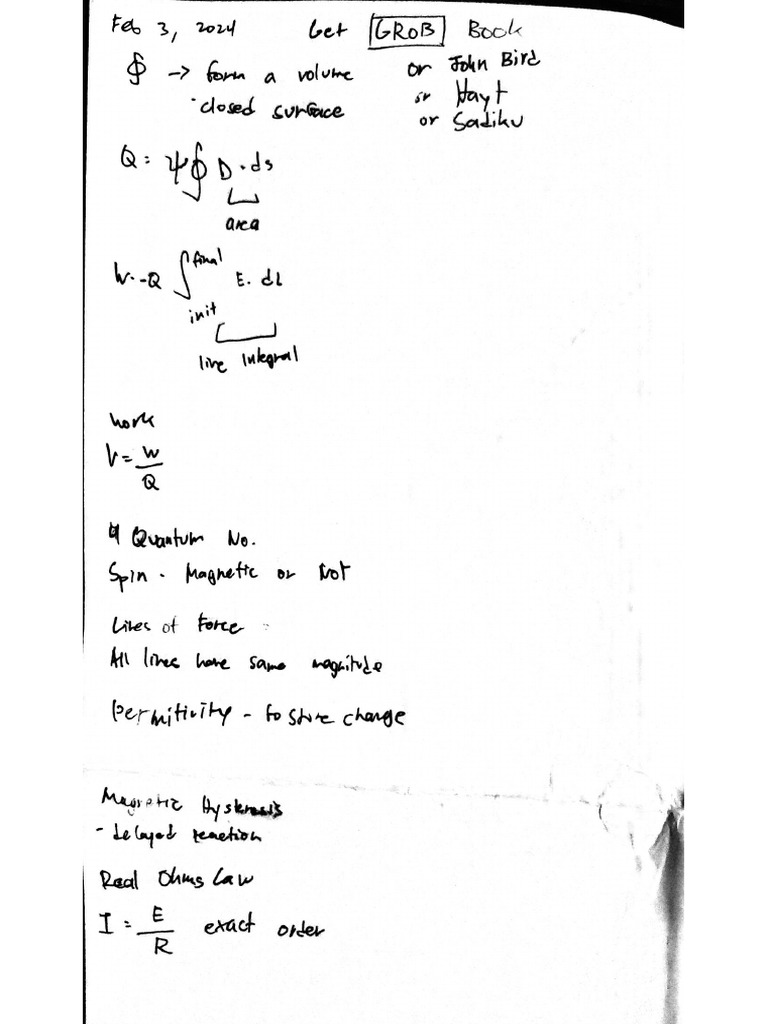 Feb 3, 2024 Get GROB Book
∮ -> form a volume or John Bird
· closed surface or Hayt
or Sadiku
Q = ψ∮ D · ds
area
W = -Q ∫ final E. dL
init
line integral
work
V = W
Q
4 Quantum No.
Spin - Magnetic or Not
Lines of Force
All lines have same magnitude
Permitivity - to store charge
Magnetic Hysterisis
- delayed reaction
Real Ohms Law
I = E exact order
R